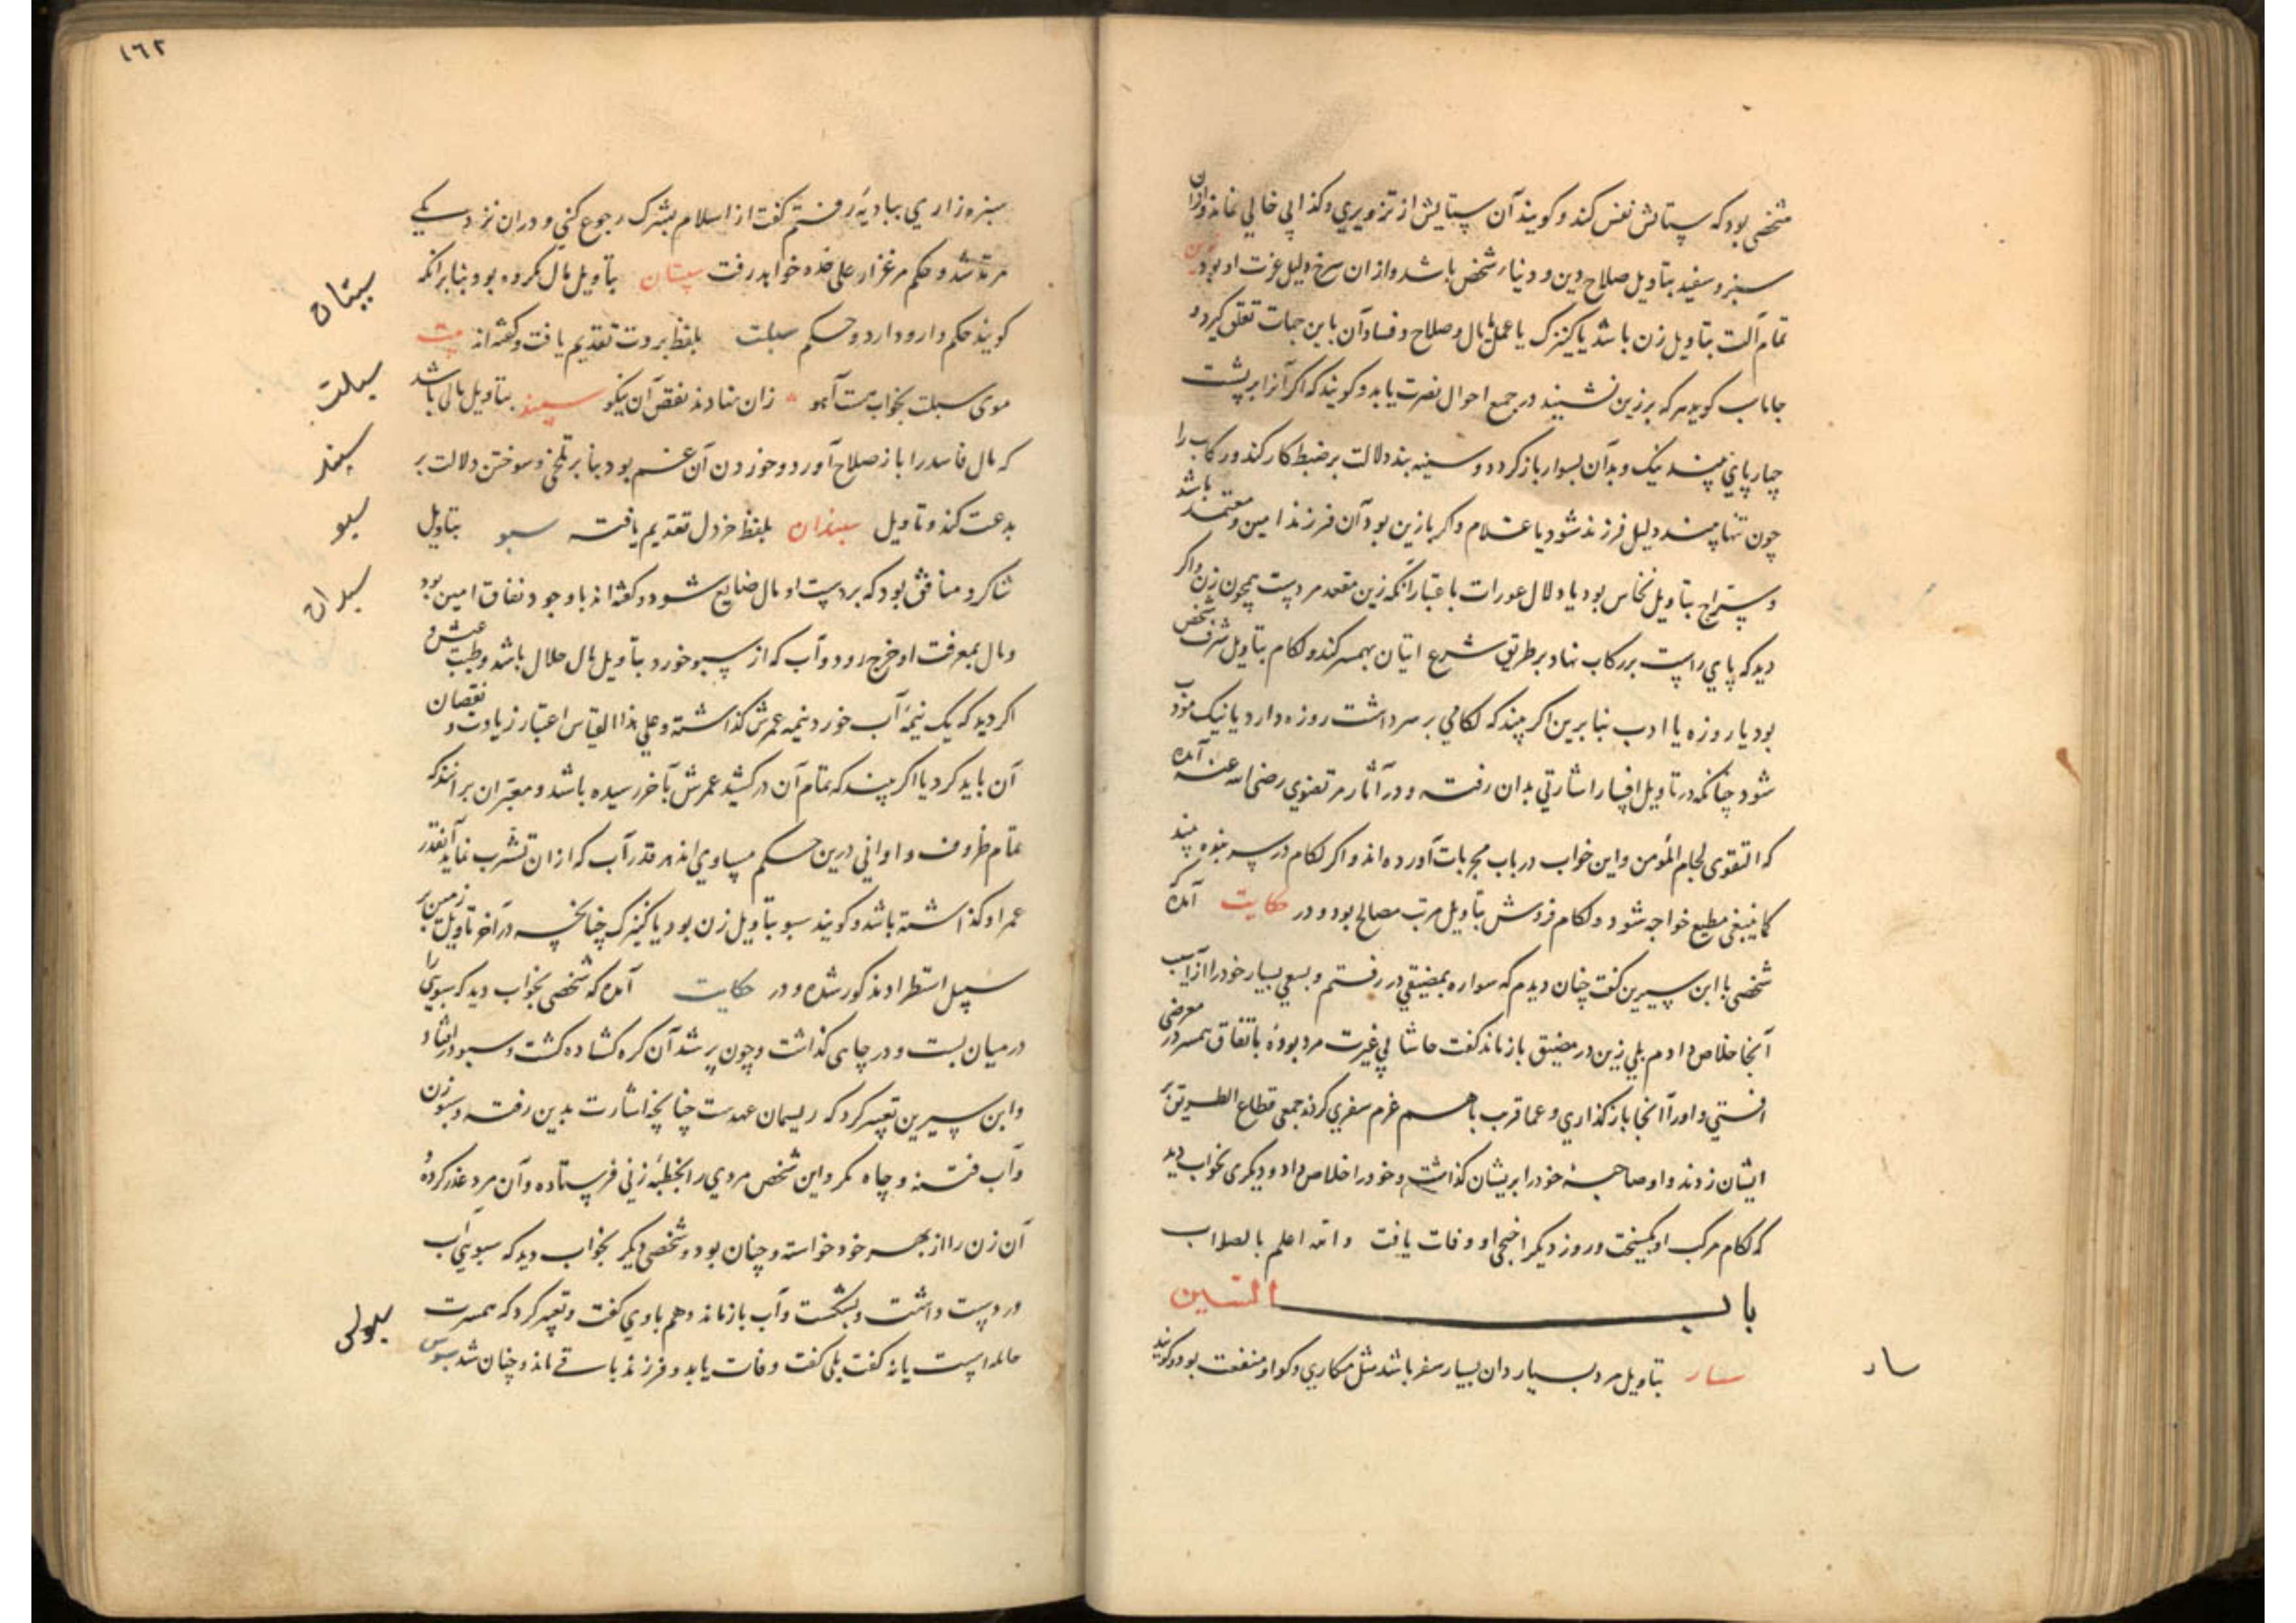 شخصی بود که ستایش نفس کند و کویند آن ستایش از تزویری و کذابی خالی نماند و ازان
سبز و سفید بتاویل صلاح دین و دنیاء شخص باشد و ازان سرخ دلیل عزت او بود زین
تمام آلت بتاویل زن باشد یا کنیزک یا عمل یا مال و صلاح و فساد آن باین جهات تعلق کیرد و
جاماب کوید هر که بر زین نشیند در جمع احوال نصرت یابد و کویند که اکر آنرا بر پشت
چهارپای بیند نیک و بد آن بسوار باز کردد و سینه بند دلالت بر ضبط کار کند و رکاب را
چون تنها بیند دلیل فرزند شود یا غلام و اکر با زین بود آن فرزند امین و معتمد باشد
و سراج بتاویل نخاس بود یا دلال عورات باعتبار آنکه زین مقعد مردست همچون زن و اکر
دید که پای راست بر رکاب نهاد بر طریق شرع اتیان بهمسر کند و لکام بتاویل شرف شخص
بود یا روزه یا ادب بنابرین اکر بیند که لکامی بر سر داشت روزه دارد یا نیک مؤدب
شود چنانکه در تاویل افسار اشارتی بدان رفت و در آثار مرتضوی رضی الله عنه آمده
که التقوی لجام المؤمن و این خواب در باب مجربات آورده اند و اکر لکام در سر بنده بیند
کما ینبغی مطیع خواجه شود و لکام فروش بتاویل مرتب مصالح بود و در حکایت آمده که
شخصی با ابن سیرین کفت چنان دیدم که سواره بمضیقی در رفتم و بسعی بسیار خود را از آسیب
آنجا خلاص دادم بلی زین در مضیق باز ماند کفت حاشا بی غیرت مرد بوده باتفاق همسر در معرضی
افتی و او را آنجا باز کذاری و عما قرب با هم عزم سفری کردند جمعی قطاع الطریق بر
ایشان زدند و او صاحبه خود را بریشان کذاشت و خود را خلاص داد و دیکری بخواب دید
که لکام مرکب او بکسیخت و روز دیکر اخجی او وفات یافت والله اعلم بالصواب
باب السین
سار
سار بتاویل مرد بسیار دان بسیار سفر باشد مثل مکاری و کواو منفعت بود و کویند
١٦٢
سبزه زاری ببادیه رفتم کفت از اسلام بشرک رجوع کنی و دران نزدیکی
مرتد شد و حکم مرغزار علی حده خواهد رفت سپستان بتاویل مال کروه بود بنابر آنکه
سپستان
کویند حکم دارو دارد و حکم سبلت بلفظ بروت تقدیم یافت و کفته اند
سبلت
موی سبلت بخواب هست آهو زان متاد نه نقص آن نیکو سپند بتاویل مالی باشد
سپند
که مال فاسد را باز صلاح آورد و خوردن آن غم بود بنابر تلخی و سوختن دلالت بر
بدعت کند و تاویل سپندان بلفظ خردل تقدیم یافت سبو بتاویل
سبو
شاکرد منافق بود که بر دست او مال ضایع شود و کفته اند با وجود نفاق امین بود
و مال بمعرفت او خرج رود و آب که از سبو خورد بتاویل مال حلال باشد و طیب عیش و
اکر دید که یک نیمه آب خورد نیمه عمرش کذاشته و علی هذا القیاس اعتبار زیادت و نقصان
آن باید کرد یا اکر بیند که تمام آن در کشید عمرش بآخر رسیده باشد و معبران برانند که
تمام ظروف و اوانی درین حکم مساوی اند هر قدر آب که ازان تشرب نماید آنقدر
عمر او کذاشته باشد و کویند سبو بتاویل زن بود یا کنیزک چنانچه در آخر تاویل زمین بر
سبیل استطراد مذکور شده و در حکایت آمده که شخصی بخواب دید که سبویی را
در میان بست و در چاهی کذاشت و چون پر شد آن کره کشاده کشت و سبو در افتاد
و ابن سیرین تعبیر کرد که ریسمان عهدست چنانچه اشارت بدین رفت و سبو زن
و آب فتنه و چاه مکر و این شخص مردی را بخطبه زنی فرستاده و آن مرد غدر کرده و
آن زن را از بهر خود خواسته و چنان بود و شخصی دیکر بخواب دید که سبویی آب
در دست داشت و بشکست و آب باز ماند و هم با وی کفت و تعبیر کرد که همسرت
حامله است یا نه کفت بلی کفت وفات یابد و فرزند باقی ماند و چنان شد سبوس